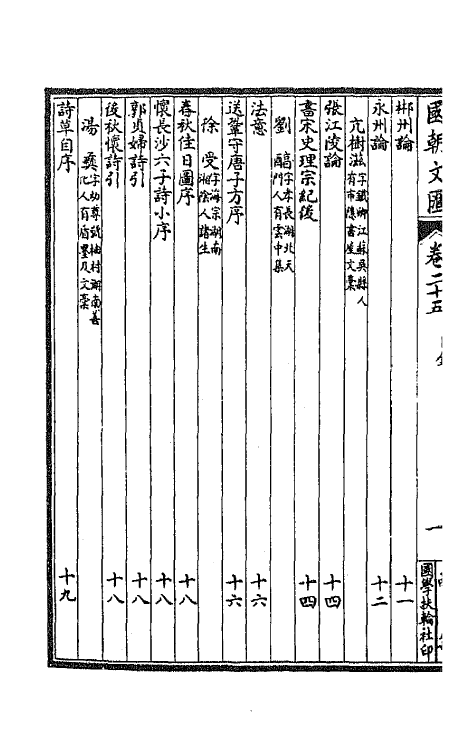 國朝文匯 卷二十五 一 國學扶輪社印
郴州論 十一
永州論 十二
亢樹滋 字鐵卿江蘇吳縣人有市隱書屋文藁
張江陵論 十四
書宋史理宗紀後 十四
劉 字孝長湖北天門人有雲中集
法意 十六
送鞏守唐子方序 十六
徐受 字海宗湖南湘陰人諸生
春秋佳日圖序 十八
懷長沙六子詩小序 十八
郭貞婦詩引 十八
後秋懷詩引 十八
湯彝 字幼尊號柚村湖南善化人有盾墨及文藁
詩草自序 十九